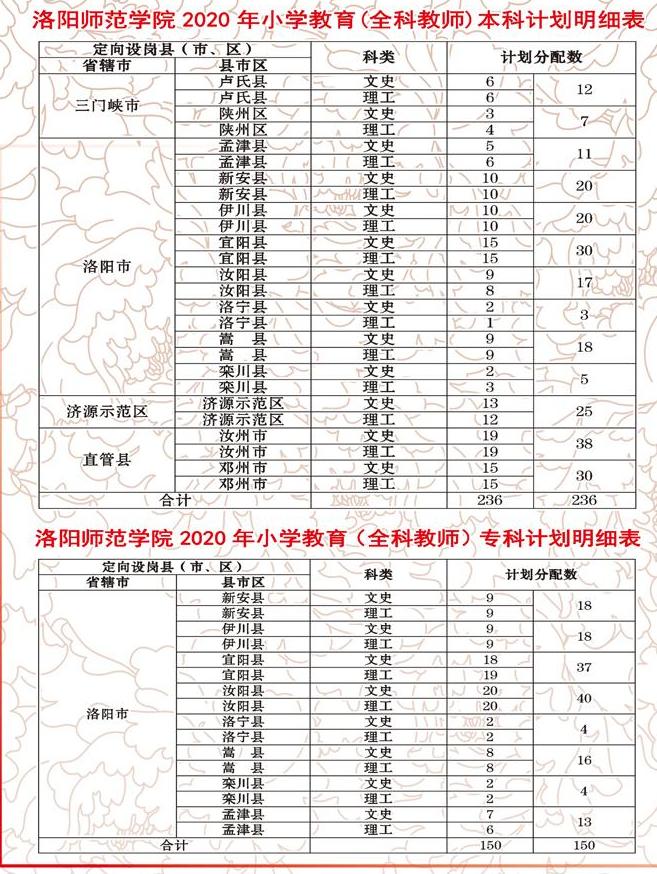 洛阳师范学院2020年小学教育(全科教师)本科计划明细表
定向设岗县(市、区) 科类 计划分配数
省辖市 县市区
三门峡市 卢氏县 文史 6 12
卢氏县 理工 6
陕州区 文史 3 7
陕州区 理工 4
洛阳市 孟津县 文史 5 11
孟津县 理工 6
新安县 文史 10 20
新安县 理工 10
伊川县 文史 10 20
伊川县 理工 10
宜阳县 文史 15 30
宜阳县 理工 15
汝阳县 文史 9 17
汝阳县 理工 8
洛宁县 文史 2 3
洛宁县 理工 1
嵩 县 文史 9 18
嵩 县 理工 9
栾川县 文史 2 5
栾川县 理工 3
济源示范区 济源示范区 文史 13 25
济源示范区 理工 12
直管县 汝州市 文史 19 38
汝州市 理工 19
邓州市 文史 15 30
邓州市 理工 15
合计 236 236
洛阳师范学院2020年小学教育(全科教师)专科计划明细表
定向设岗县(市、区) 科类 计划分配数
省辖市 县市区
洛阳市 新安县 文史 9 18
新安县 理工 9
伊川县 文史 9 18
伊川县 理工 9
宜阳县 文史 18 37
宜阳县 理工 19
汝阳县 文史 20 40
汝阳县 理工 20
洛宁县 文史 2 4
洛宁县 理工 2
嵩 县 文史 8 16
嵩 县 理工 8
栾川县 文史 2 4
栾川县 理工 2
孟津县 文史 7 13
孟津县 理工 6
合计 150 150